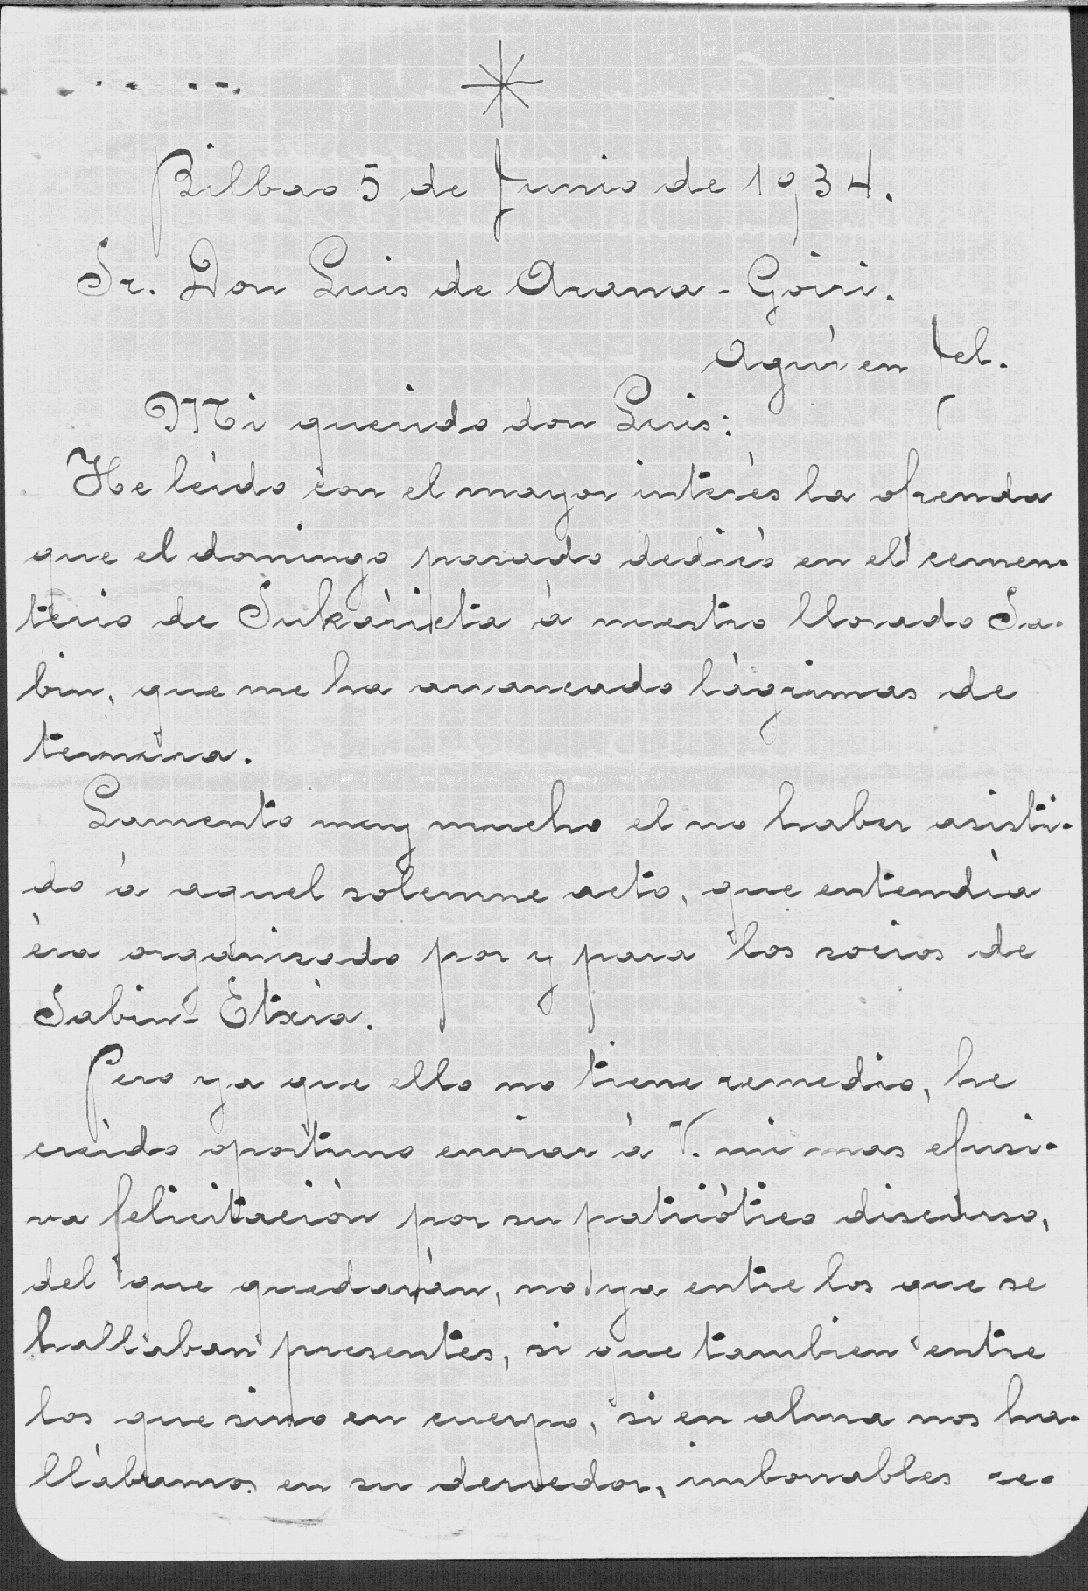 Bilbao 5 de Junio de 1934.
Sr. Don Luis de Arana-Goiri.
Agur en Jel.
Mi querido don Luis:
He leido con el mayor interés la ofrenda
que el domingo pasado dedicó en el cemen-
terio de Sukarieta á nuestro llorado Sa-
bin, que me ha arrancado lágrimas de
ternura.
Lamento muy mucho el no haber asisti-
do á aquel solemne acto, que entendía
éra organizado por y para los socios de
Sabin-Etxia.
Pero ya que ello no tiene remedio, he
creido oportuno enviar á V. mi mas efusi-
va felicitación por su patriótico discurso,
del que quedarán, no ya entre los que se
hallaban presentes, si que tambien entre
los que sino en cuerpo, si en alma nos ha-
llábamos en su derredor, imborrables re-